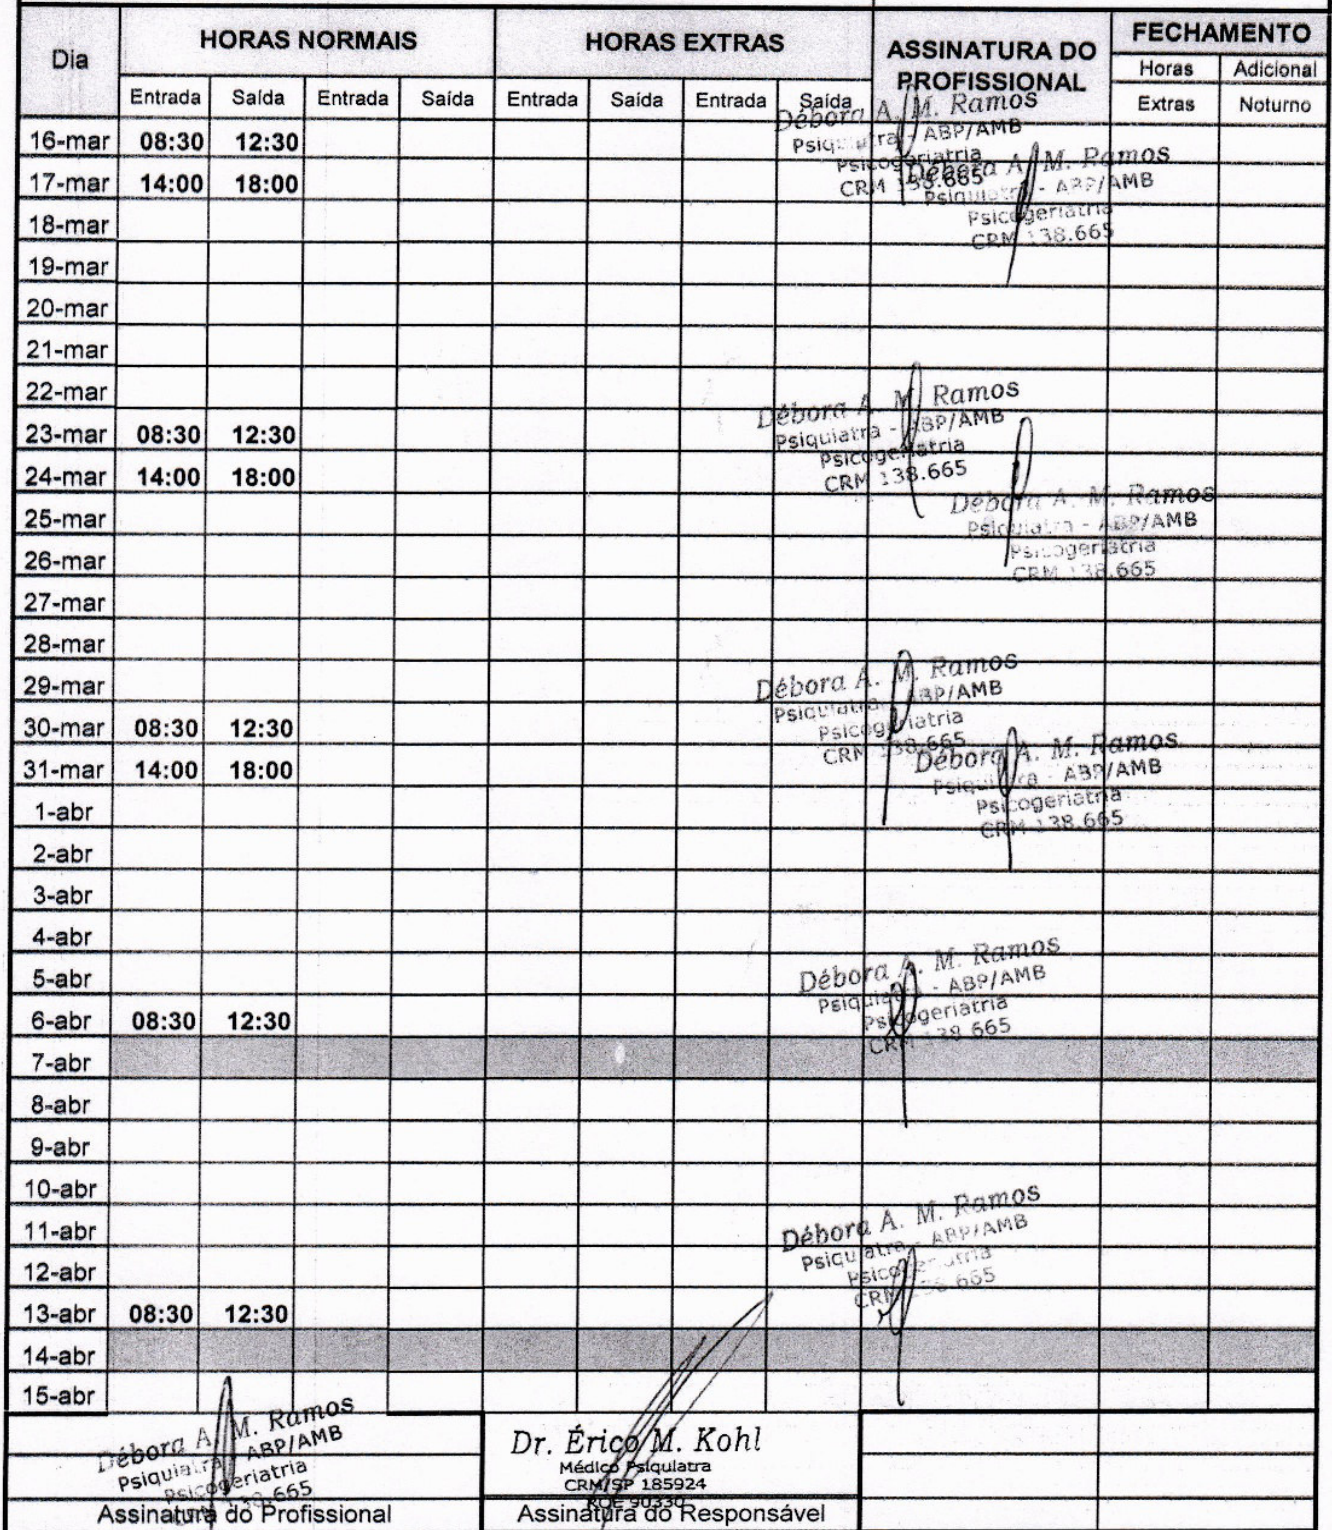 Dia HORAS NORMAIS HORAS EXTRAS ASSINATURA DO PROFISSIONAL FECHAMENTO
Entrada Saída Entrada Saída Entrada Saída Entrada Saída Horas Extras Adicional Noturno
16-mar 08:30 12:30
Débora A. M. Ramos
Psiquiatra - ABP/AMB
Psicogeriatria
CRM 138.665
17-mar 14:00 18:00
Débora A. M. Ramos
Psiquiatra - ABP/AMB
Psicogeriatria
CRM 138.665
18-mar
19-mar
20-mar
21-mar
22-mar
23-mar 08:30 12:30
Débora A. M. Ramos
Psiquiatra - ABP/AMB
Psicogeriatria
CRM 138.665
24-mar 14:00 18:00
Débora A. M. Ramos
Psiquiatra - ABP/AMB
Psicogeriatria
CRM 138.665
25-mar
26-mar
27-mar
28-mar
29-mar
30-mar 08:30 12:30
Débora A. M. Ramos
Psiquiatra - ABP/AMB
Psicogeriatria
CRM 138.665
31-mar 14:00 18:00
Débora A. M. Ramos
Psiquiatra - ABP/AMB
Psicogeriatria
CRM 138.665
1-abr
2-abr
3-abr
4-abr
5-abr
6-abr 08:30 12:30
Débora A. M. Ramos
Psiquiatra - ABP/AMB
Psicogeriatria
CRM 138.665
7-abr
8-abr
9-abr
10-abr
11-abr
12-abr
13-abr 08:30 12:30
Débora A. M. Ramos
Psiquiatra - ABP/AMB
Psicogeriatria
CRM 138.665
14-abr
15-abr
Débora A. M. Ramos
Psiquiatra - ABP/AMB
Psicogeriatria
CRM 138.665
Assinatura do Profissional
Dr. Érico M. Kohl
Médico Psiquiatra
CRM/SP 185924
RQE 90330
Assinatura do Responsável